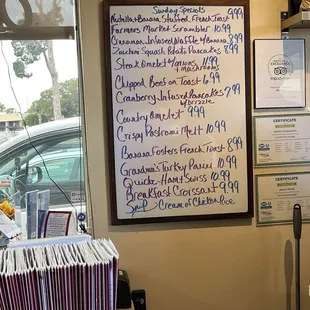 Sunday Specials
Nutella + Banana Stuffed French Toast 9.99
Farmers Market Scrambler 10.99
Cinnamon Infused Waffle w/ Banana 8.99
Zucchini Squash Potato Pancakes 8.99
Steak Omelet w/ onions 11.99
+ mushrooms
Chipped Beef on Toast 6.99
Cranberry Infused Pancakes 7.99
w/ drizzle
Country Omelet 9.99
Crispy Pastrami Melt 10.99
Banana Fosters French Toast 8.99
Grandma's Turkey Panini 10.99
Quiche - Ham + Swiss 10.99
Breakfast Croissant 9.99
Soup Cream of Chicken Rice
CERTIFICATE
CERTIFICATE
CERTIFICATE